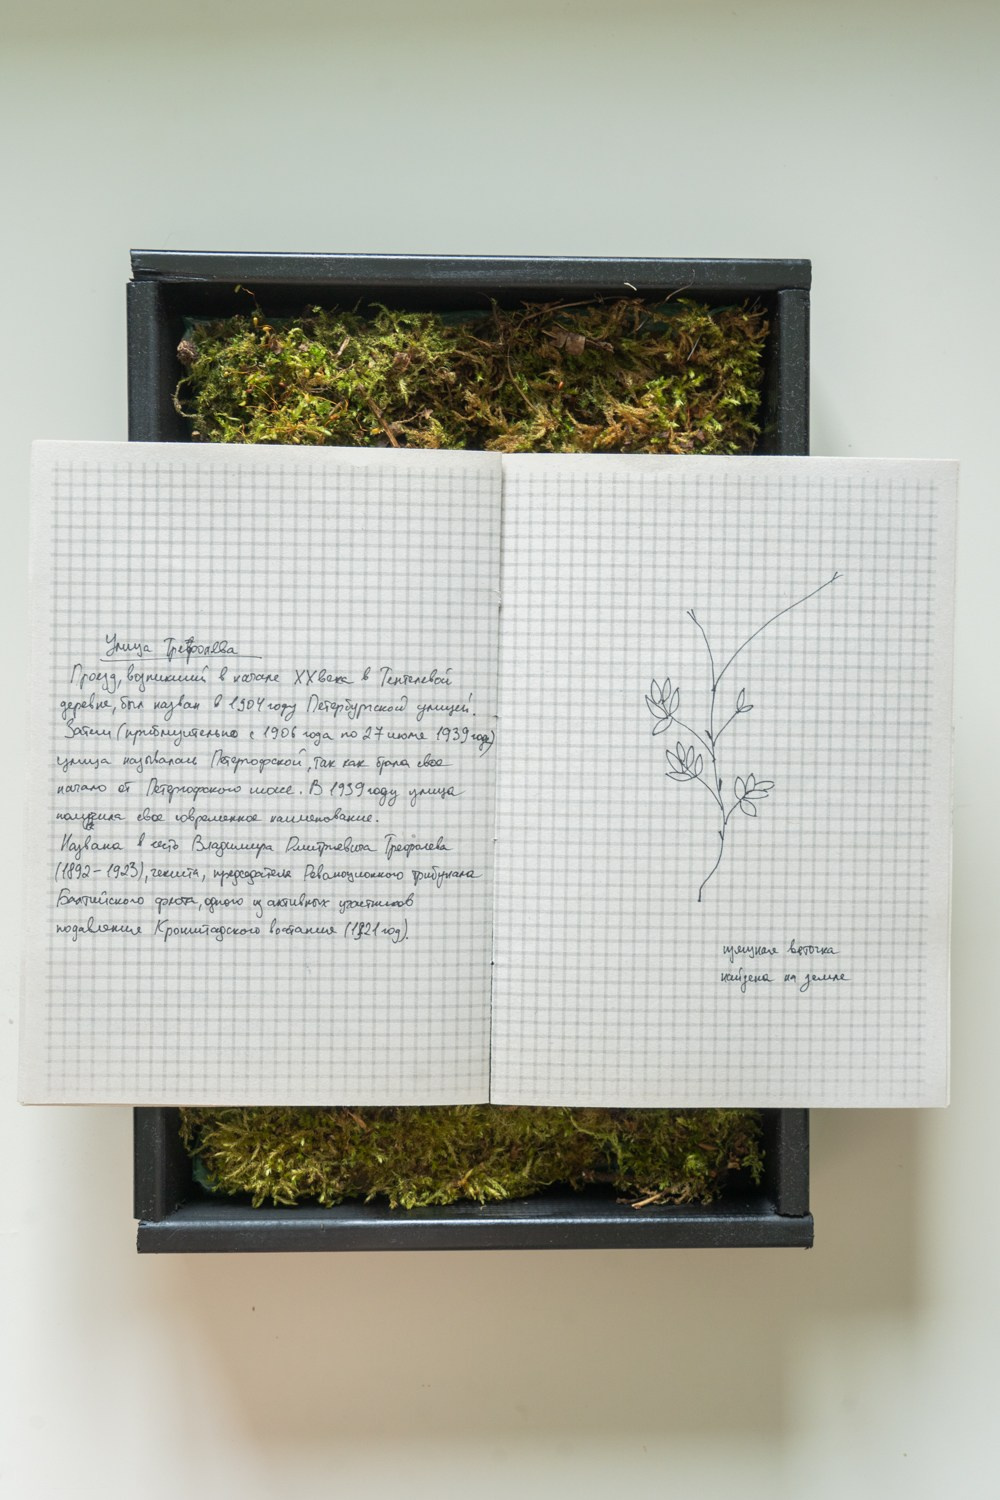 Улица Трефолева
Проезд, возникший в начале XX века в Тентелевой
деревне, был назван в 1904 году Петербургской улицей.
Затем (приблизительно с 1906 года по 27 июня 1939 года)
улица называлась Петергофской, так как брала свое
начало от Петергофского шоссе. В 1939 году улица
получила свое современное наименование.
Названа в честь Владимира Дмитриевича Трефолева
(1892-1923), чекиста, председателя Революционного трибунала
Балтийского флота, одного из активных участников
подавления Кронштадского востания (1921 год).
веточка
найдена на земле